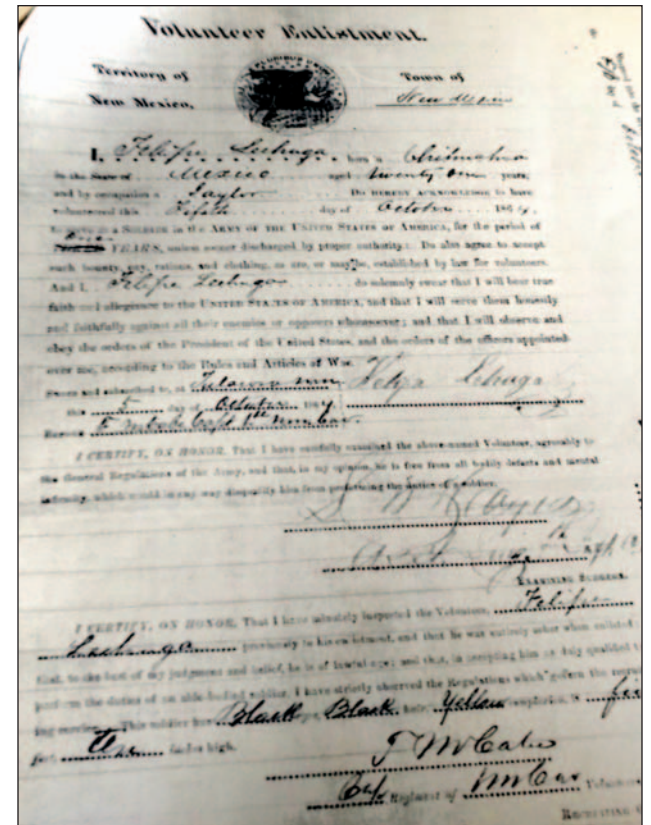 Volunteer Enlistment.
Territory of
New Mexico,
Town of
New Mexico
I, Felipe Lechuga born in Chihuahua
in the State of Mexico aged twenty one years,
and by occupation a Taylor Do HEREBY ACKNOWLEDGE to have
volunteered this Fifth day of October 1864,
to serve as a SOLDIER in the ARMY OF THE UNITED STATES OF AMERICA, for the period of
one YEARS, unless sooner discharged by proper authority: Do also agree to accept
such bounty, pay, rations, and clothing, as are, or may be, established by law for volunteers.
And I, Felipe Lechuga do solemnly swear that I will bear true
faith and allegiance to the UNITED STATES OF AMERICA, and that I will serve them honestly
and faithfully against all their enemies or opposers whomsoever; and that I will observe and
obey the orders of the President of the United States, and the orders of the officers appointed
over me, according to the Rules and Articles of War.
Sworn and subscribed to, at
Lechuga
this 5 day of October
BEFORE
I CERTIFY, ON HONOR, That I have carefully examined the above-named Volunteer, agreeably to
the General Regulations of the Army, and that, in my opinion, he is free from all bodily defects and mental
infirmity, which would in any way disqualify him from performing the duties of a soldier.
EXAMINING SURGEON.
I CERTIFY, ON HONOR, That I have minutely inspected the Volunteer, Felipe
Lechuga previously to his enlistment, and that he was entirely sober when enlisted;
that, to the best of my judgment and belief, he is of lawful age; and that, in accepting him as duly qualified to
perform the duties of an able-bodied soldier, I have strictly observed the Regulations which govern the recruit
ing service. This soldier has Black eyes, Black hair, Yellow complexion, is
feet inches high.
Regiment of Volunteers
RECRUITING